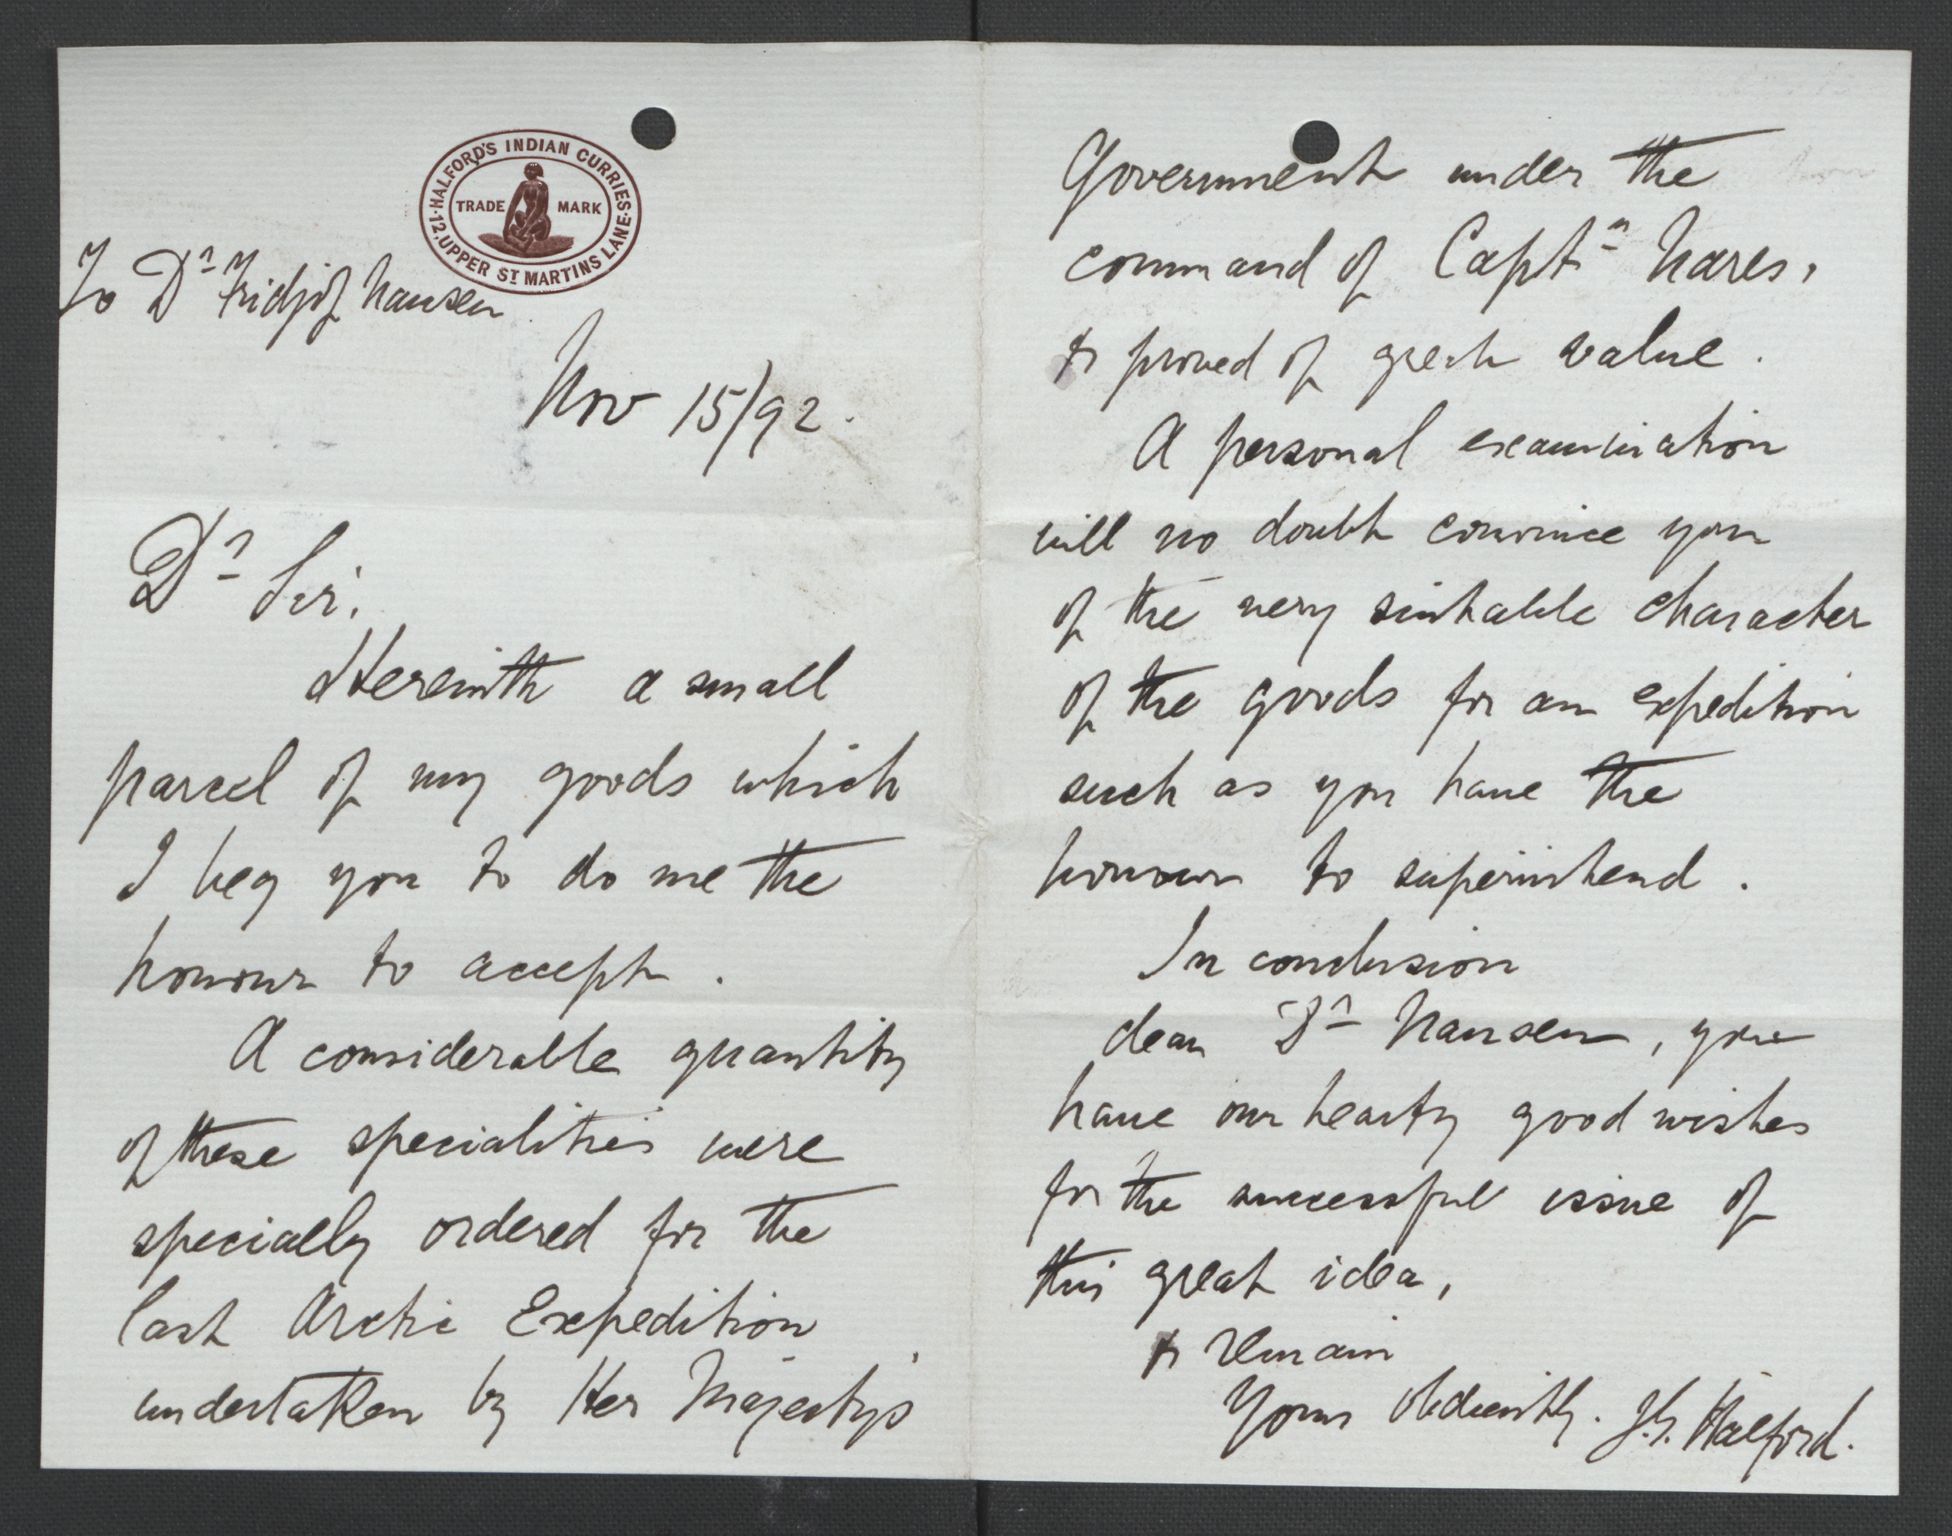 HALFORD'S INDIAN CURRIES
TRADE MARK
12. UPPER ST MARTINS LANE
To Dr Fridjof Nansen
Nov 15/92.
Dr Sir.
Herewith a small
parcel of my goods which
I beg you to do me the
honour to accept.
A considerable quantity
of these specialities were
specially ordered for the
last Arctic Expedition
undertaken by Her Majesty's
Government under the
command of Captn Nares,
& proved of great value.
A personal examination
will no doubt convince you
of the very suitable character
of the goods for an expedition
such as you have the
honour to superintend.
In conclusion
dear Dr Nansen, you
have our hearty good wishes
for the successful issue of
this great idea,
& remain
Yours obediently. J.G. Halford.